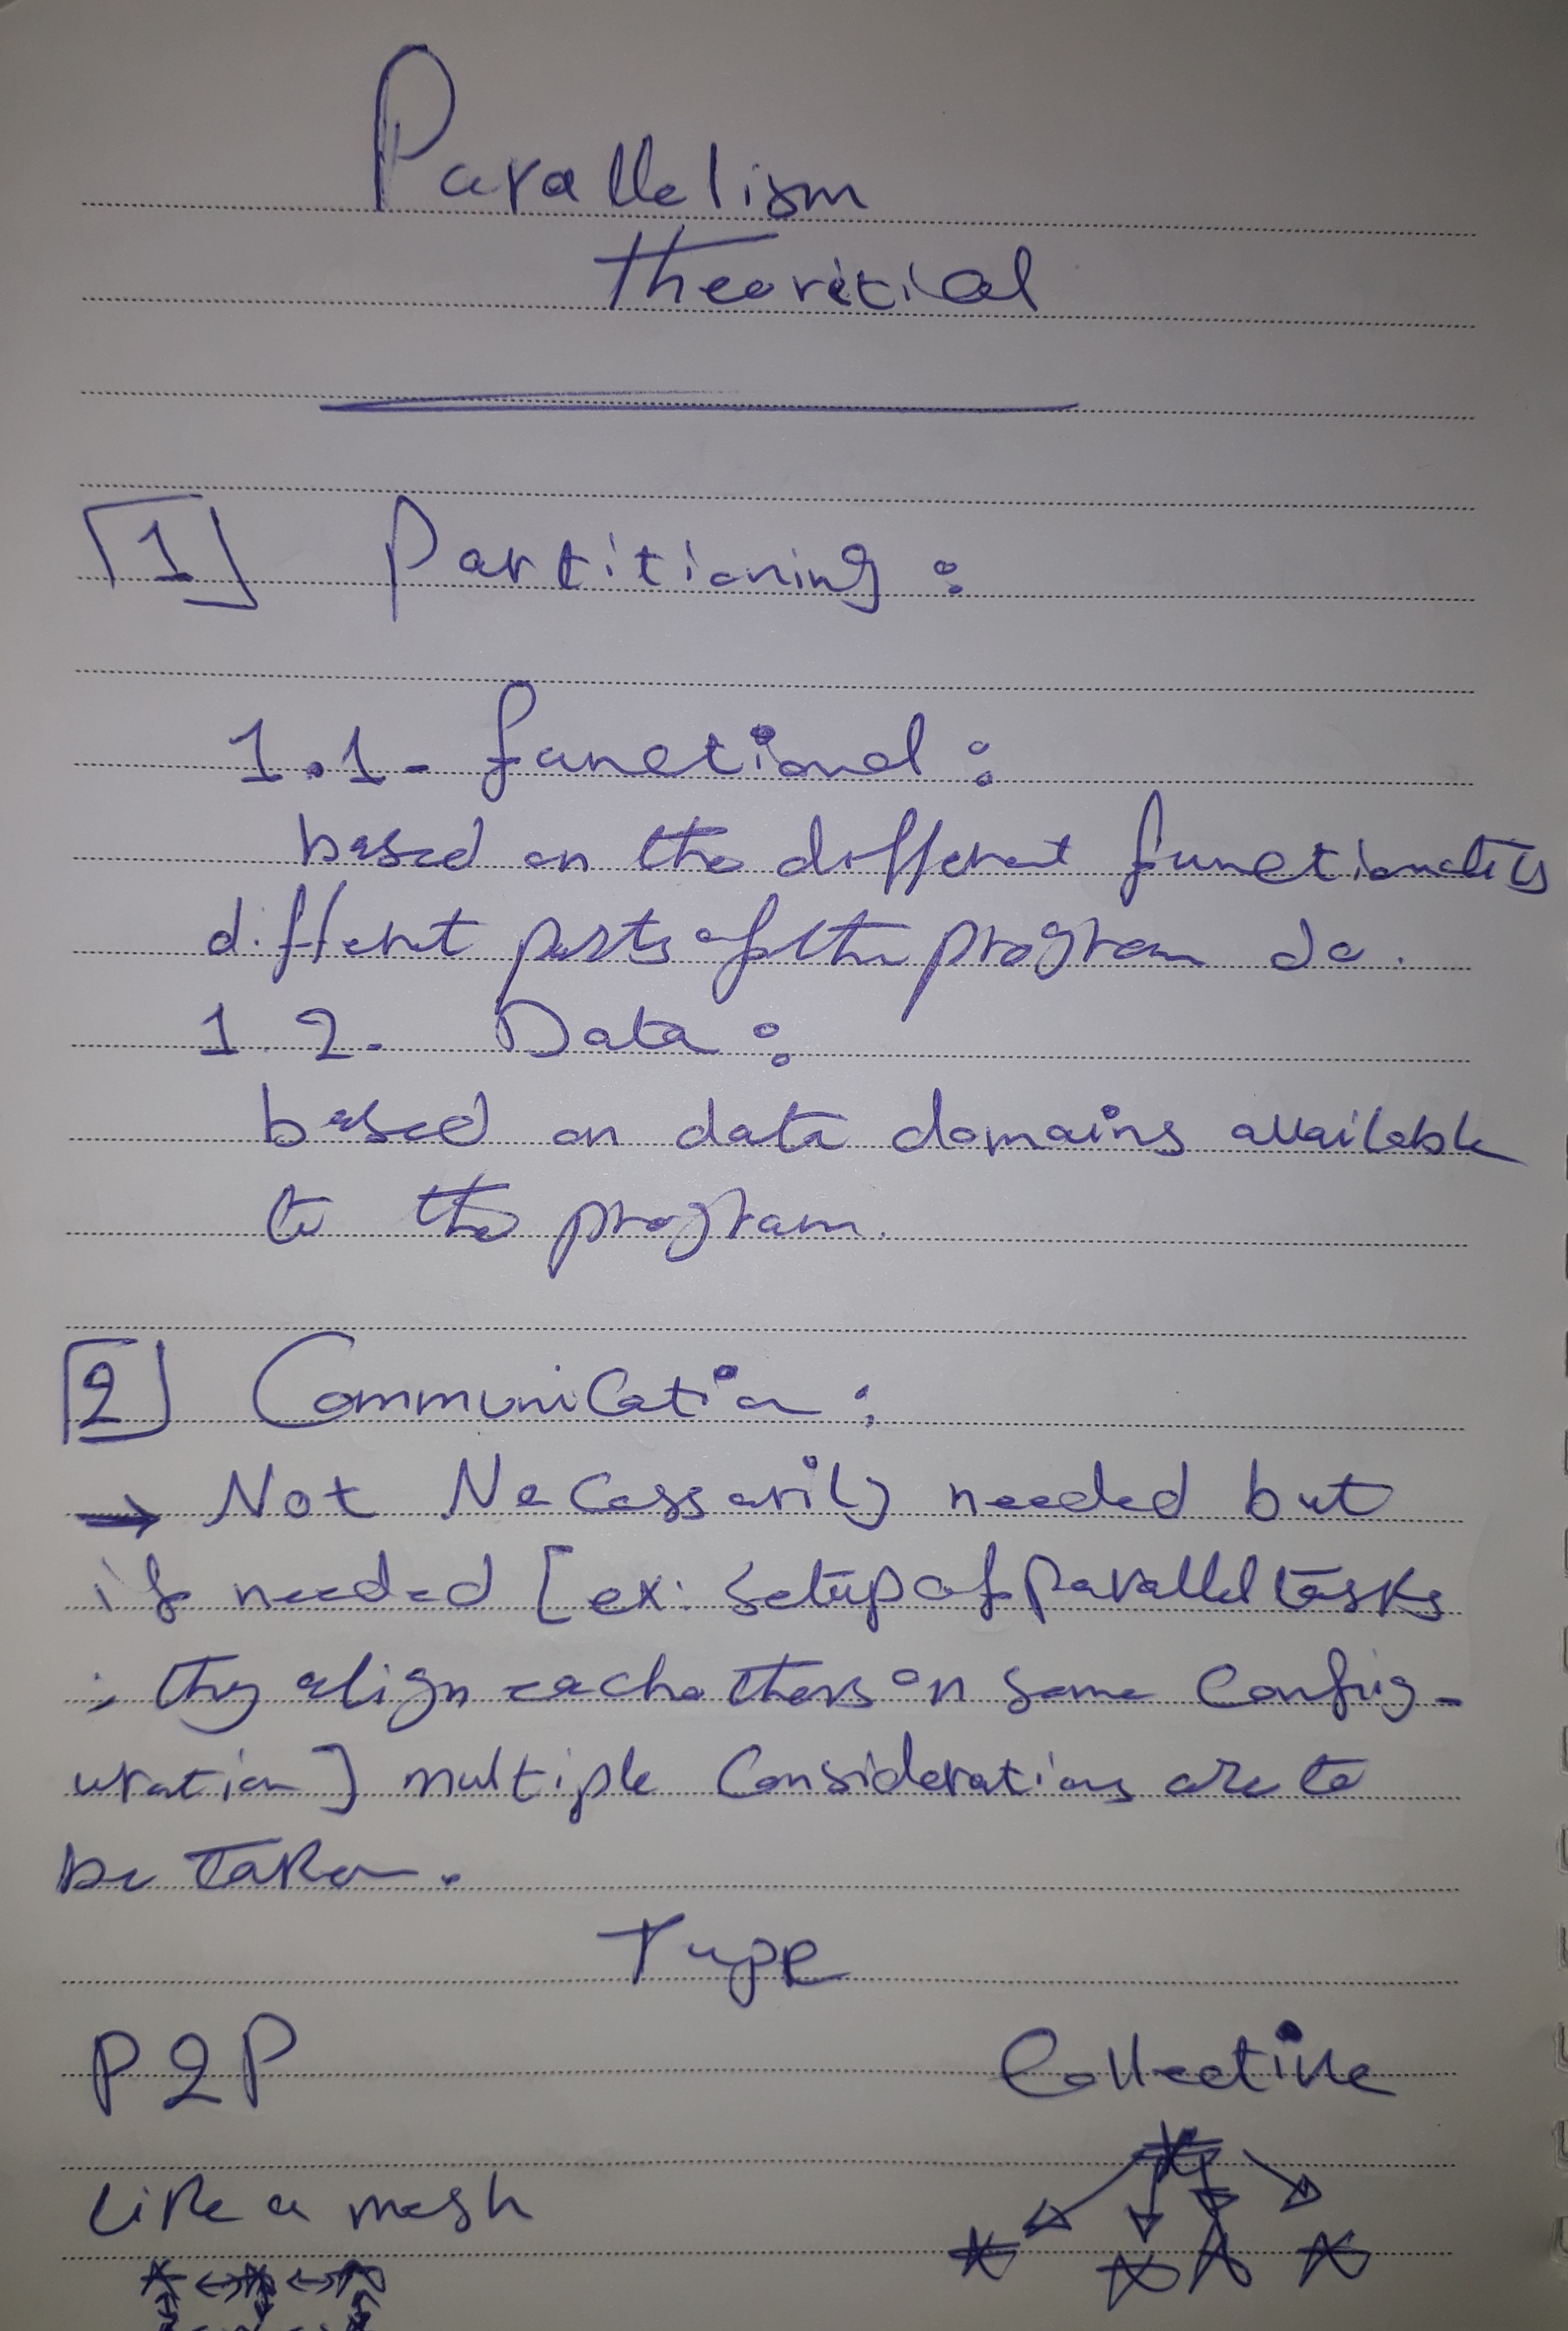 Parallelism
theoritical
[1] Partitioning :
1.1- functional :
based on the different functionality
different parts of the program do.
1.2- Data :
based on data domains available
to the program.
[2] Communication :
→ Not Necessarily needed but
if needed [ex: setup of parallel tasks
; they align each others on same config-
uration] multiple considerations are to
be taken.
Type
P2P Collective
Like a mesh